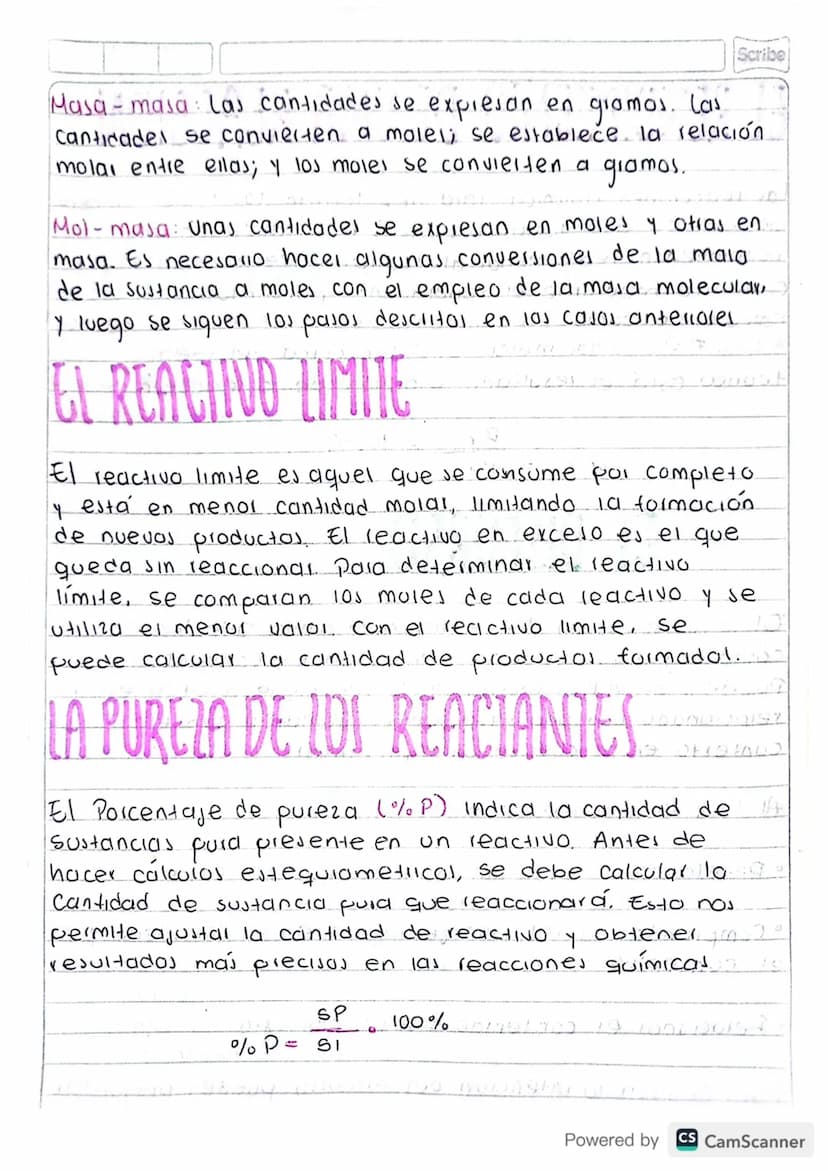 Scribe
Masa - masa: Las cantidades se expresan en gramos. Las
cantidades se convierten a moles; se establece la relación
molar entre ellas; y los moles se convierten a gramos.
Mol - masa: Unas cantidades se expresan en moles y otras en
masa. Es necesario hacer algunas conversiones de la masa
de la sustancia a moles con el empleo de la masa molecular,
y luego se siguen los pasos descritos en los casos anteriores
El REACTIVO LIMITE
El reactivo limite es aquel que se consume por completo
y está en menor cantidad molar, limitando la formación
de nuevos productos. El reactivo en exceso es el que
queda sin reaccionar. Para determinar el reactivo
límite, se comparan los moles de cada reactivo y se
utiliza el menor valor. Con el reactivo limite, se
puede calcular la cantidad de productos formados.
LA PUREZA DE LOS REACTANTES
El Porcentaje de pureza (% P) indica la cantidad de
sustancias pura presente en un reactivo. Antes de
hacer cálculos estequiometricos, se debe calcular la
cantidad de sustancia pura que reaccionará. Esto nos
permite ajustar la cantidad de reactivo y obtener
resultados más precisos en las reacciones químicas
SP
% P = — • 100%
SI
Powered by CS CamScanner